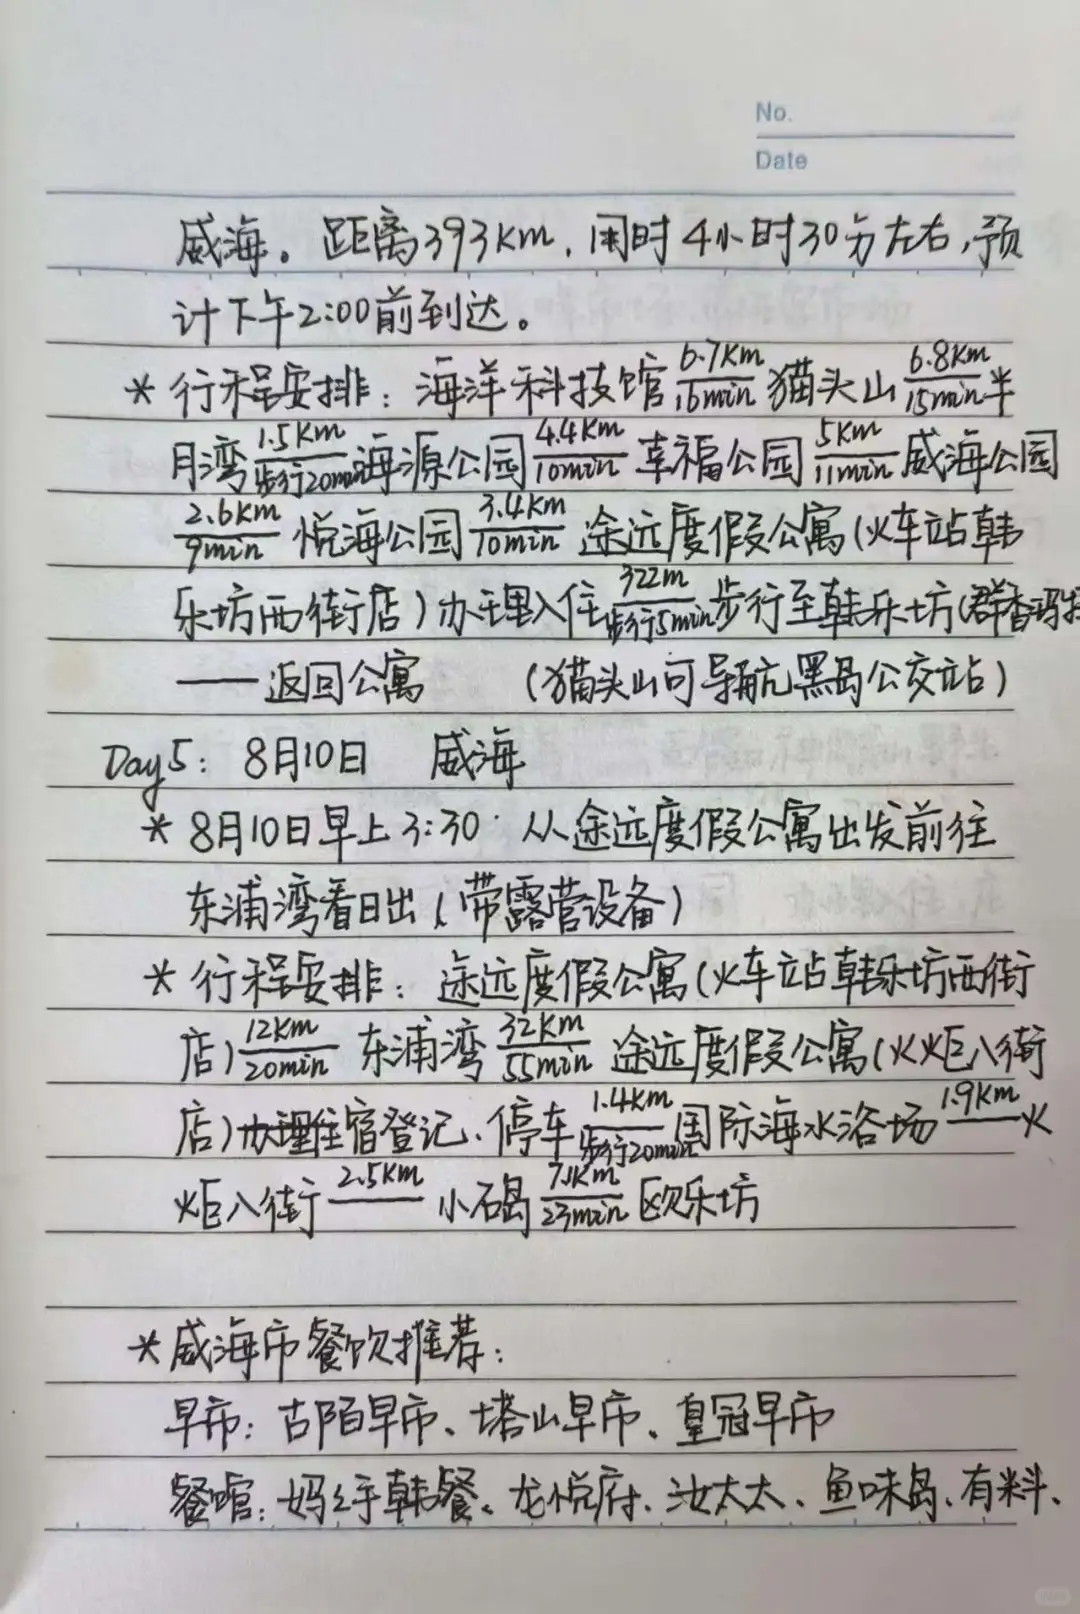 No.
Date
威海。距离393Km，用时4小时30分左右，预
计下午2:00前到达。
* 行程安排：海洋科技馆 6.7Km/16min 猫头山 6.8Km/15min 半
月湾 1.5Km/步行20min 海源公园 4.4Km/10min 幸福公园 5Km/11min 威海公园
2.6Km/9min 悦海公园 3.4Km/10min 途远度假公寓（火车站韩
乐坊西街店）办理入住 322m/步行5min 步行至韩乐坊（群香玛拉
——返回公寓 （猫头山可导航黑岛公交站）
Day5：8月10日 威海
* 8月10日早上3:30 从途远度假公寓出发前往
东浦湾看日出（带露营设备）
* 行程安排：途远度假公寓（火车站韩乐坊西街
店）12Km/20min 东浦湾 32Km/55min 途远度假公寓（火炬八街
店）办理住宿登记、停车 1.4Km/步行20min 国际海水浴场 1.9Km 火
炬八街 2.5Km 小石岛 7.1Km/23min 欧乐坊
*威海市餐饮推荐：
早市：古陌早市、塔山早市、皇冠早市
餐馆：妈妈手韩餐、龙悦府、汝太太、鱼味岛、有料、